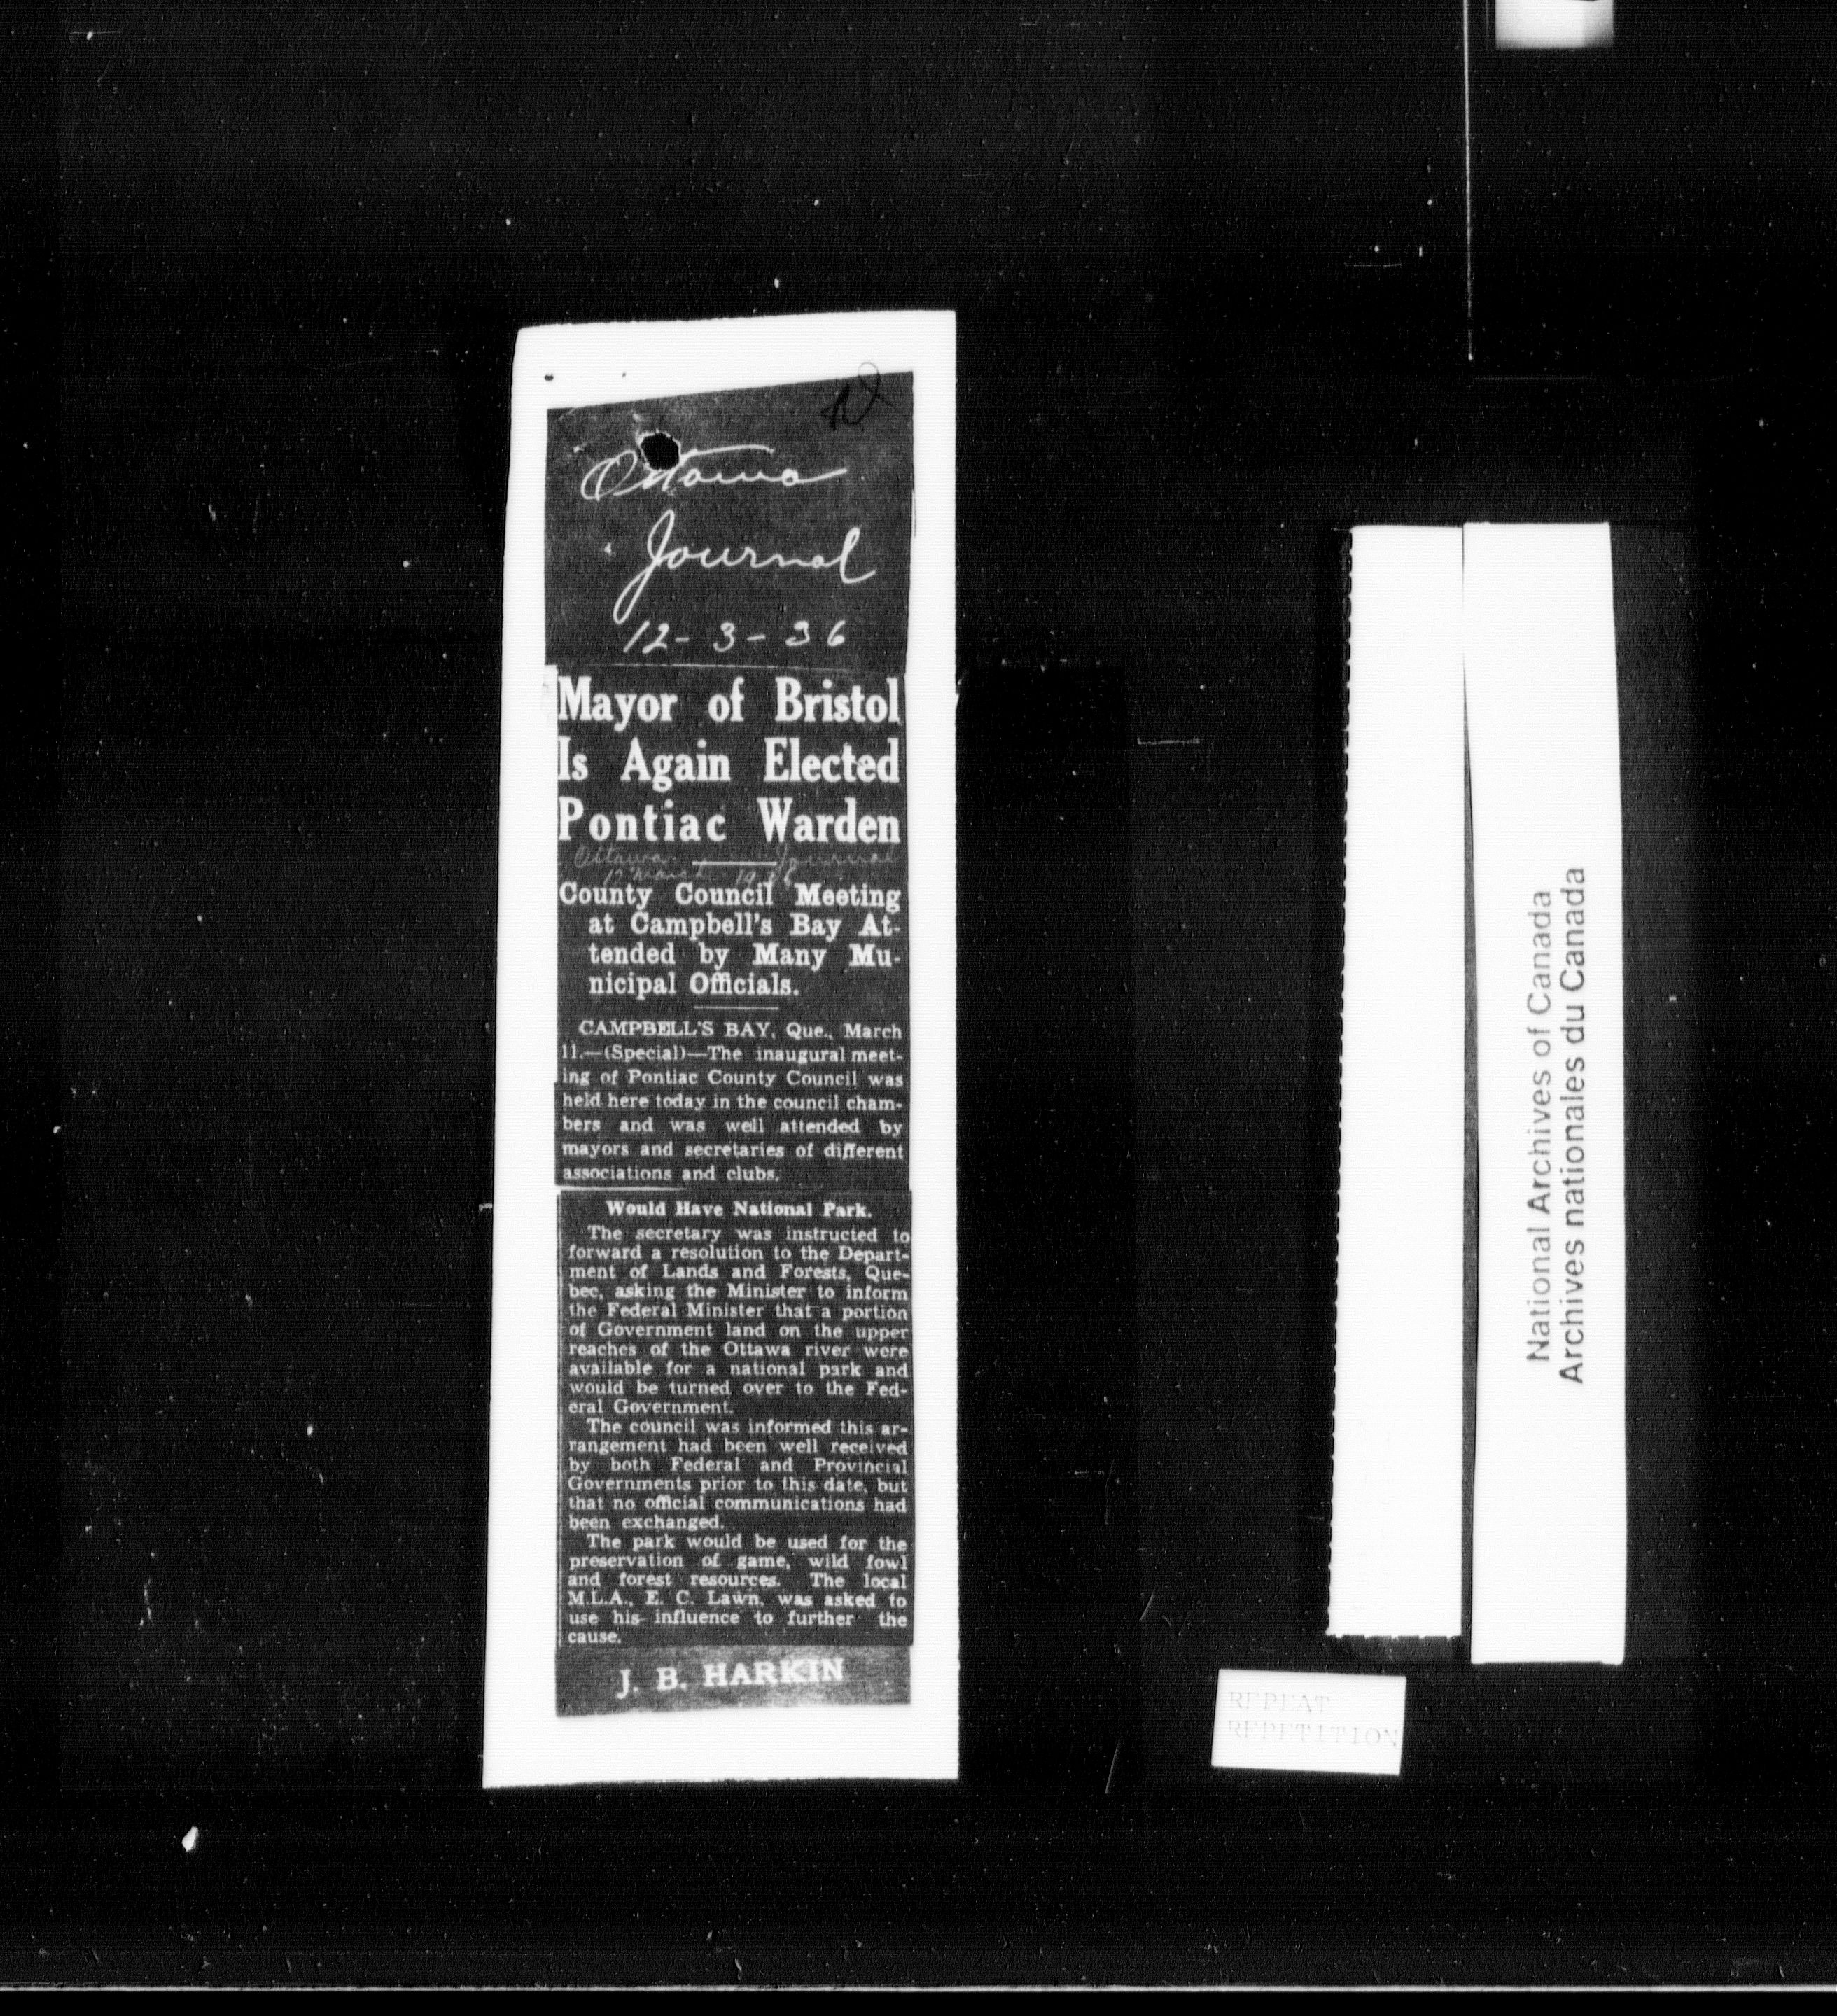 Ottawa
Journal
12-3-36
Mayor of Bristol
Is Again Elected
Pontiac Warden
Ottawa Journal
12 March 1936
County Council Meeting
at Campbell's Bay At-
tended by Many Mu-
nicipal Officials.
CAMPBELL'S BAY, Que., March
11.—(Special)—The inaugural meet-
ing of Pontiac County Council was
held here today in the council cham-
bers and was well attended by
mayors and secretaries of different
associations and clubs.
Would Have National Park.
The secretary was instructed to
forward a resolution to the Depart-
ment of Lands and Forests, Que-
bec, asking the Minister to inform
the Federal Minister that a portion
of Government land on the upper
reaches of the Ottawa river were
available for a national park and
would be turned over to the Fed-
eral Government.
The council was informed this ar-
rangement had been well received
by both Federal and Provincial
Governments prior to this date, but
that no official communications had
been exchanged.
The park would be used for the
preservation of game, wild fowl
and forest resources. The local
M.L.A., E. C. Lawn, was asked to
use his influence to further the
cause.
J. B. HARKIN
National Archives of Canada
Archives nationales du Canada
REPEAT
REPETITION